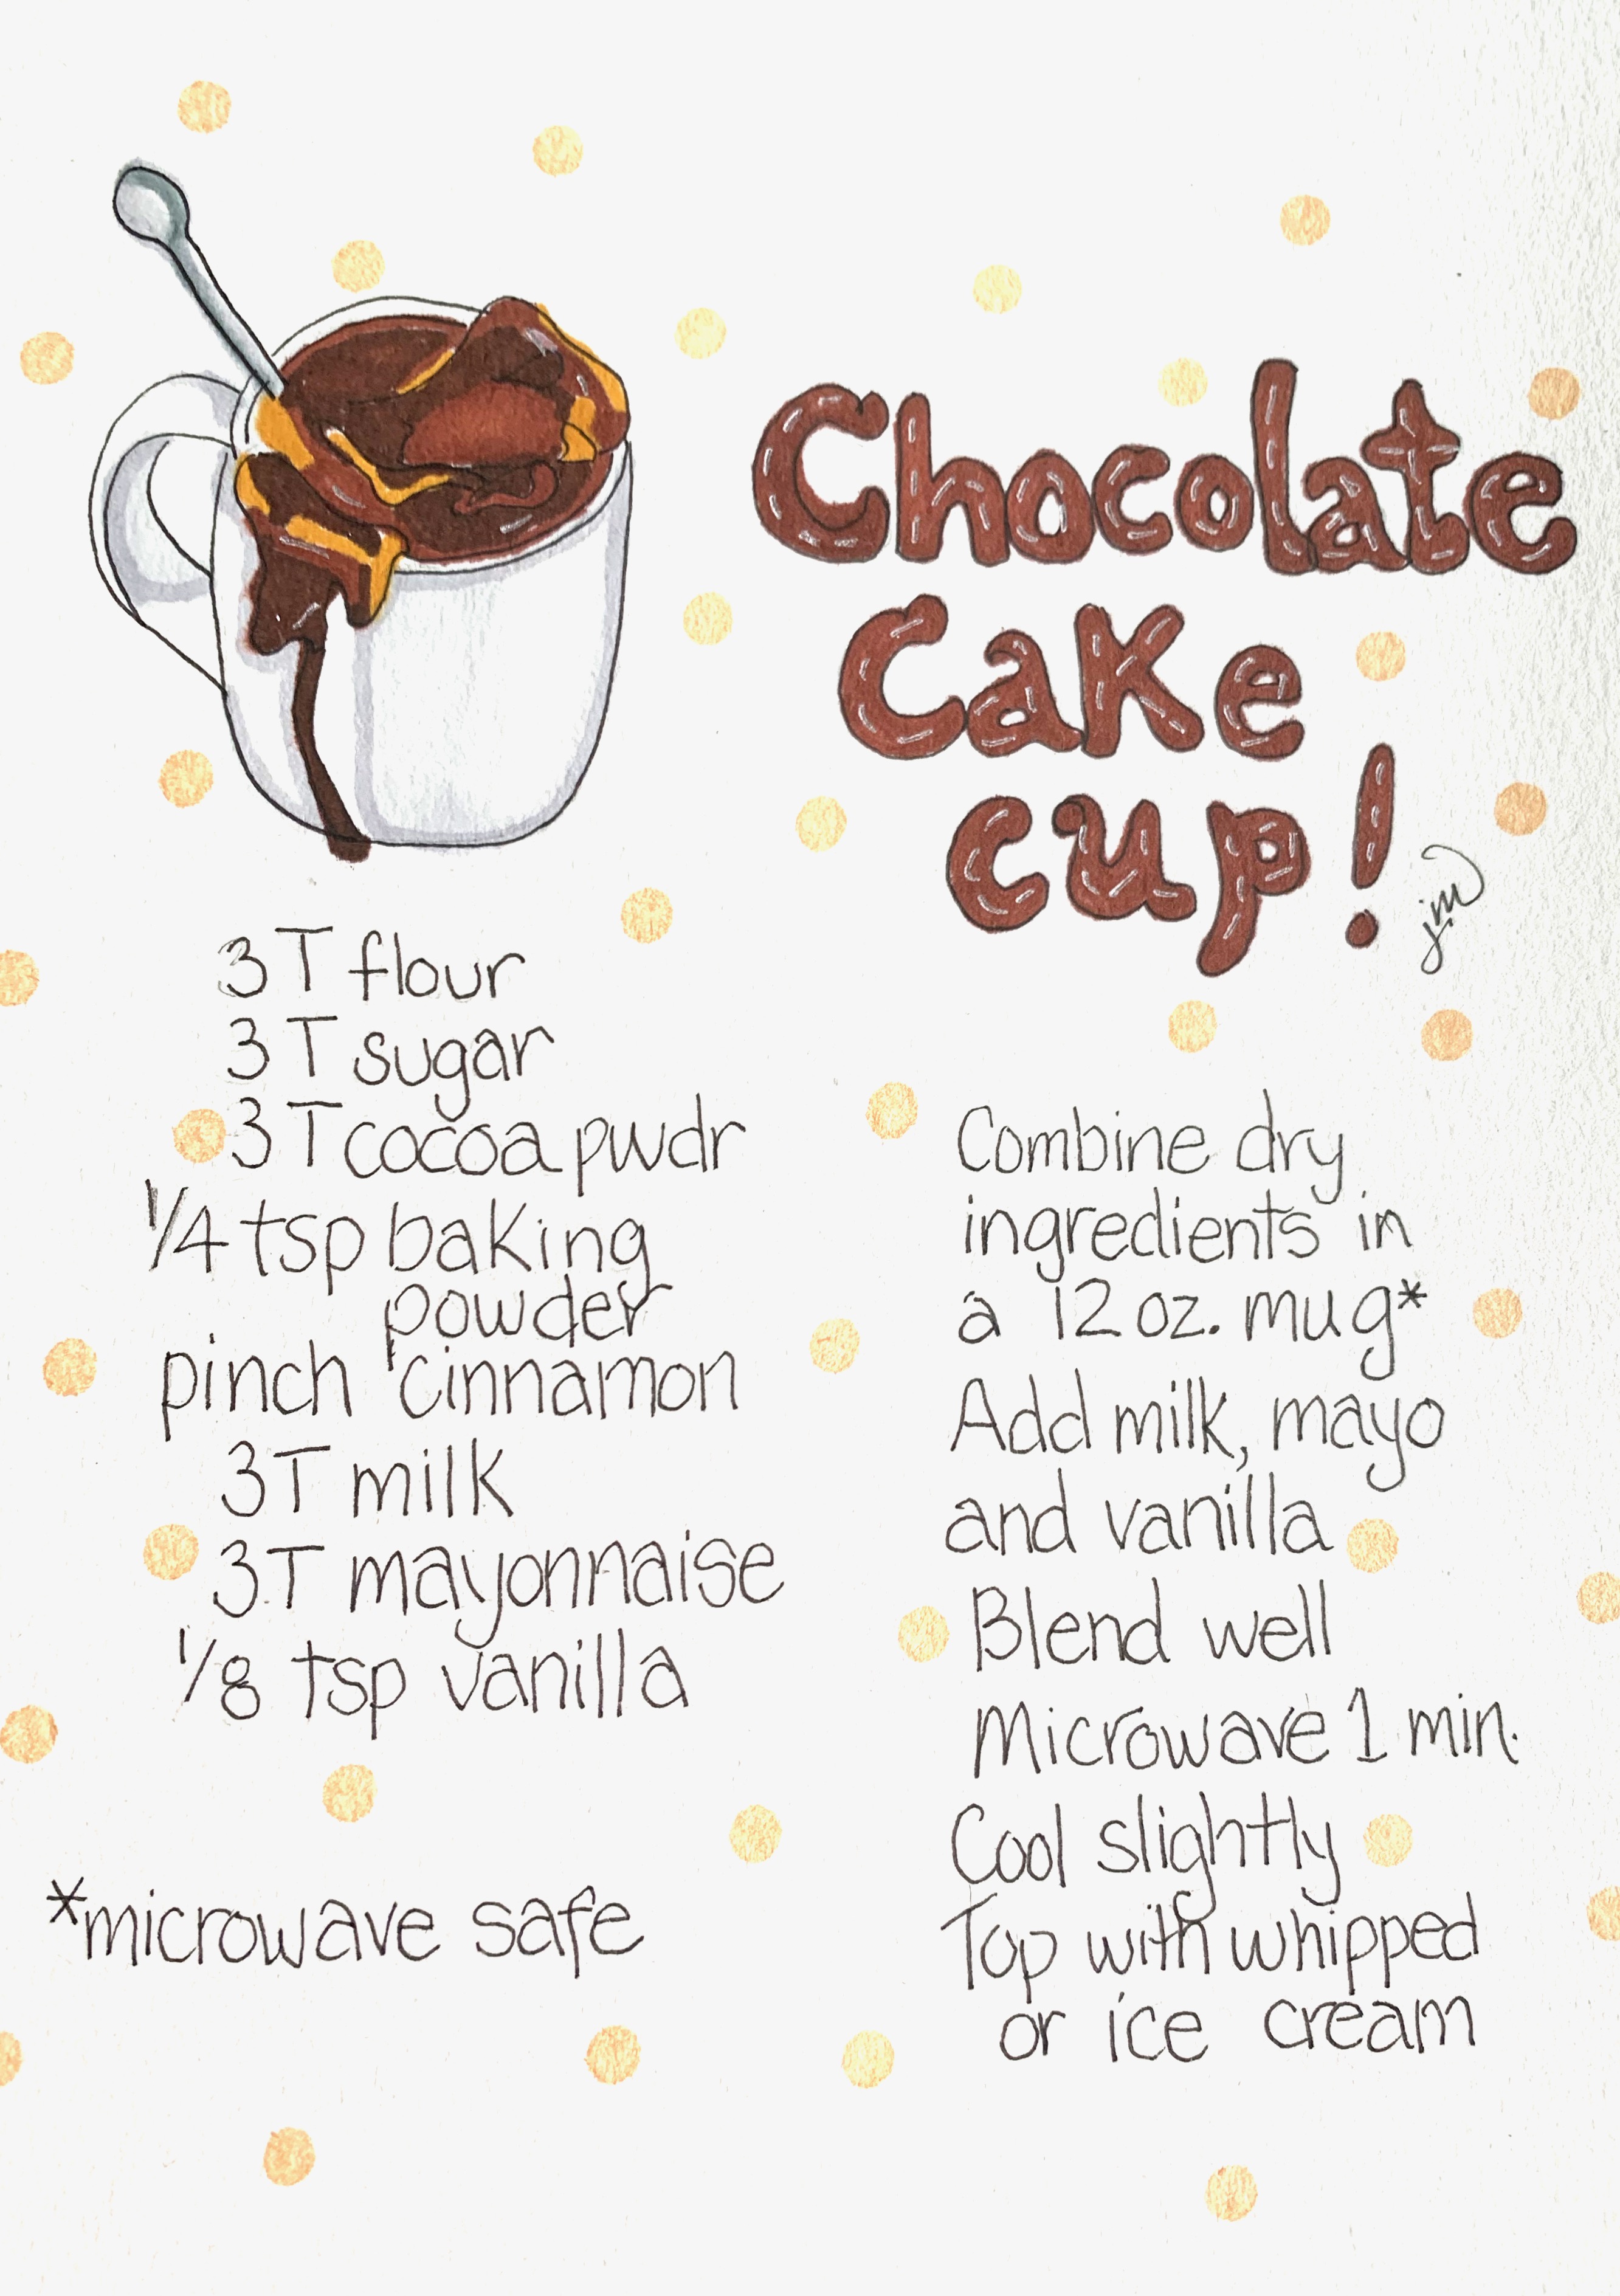 Chocolate
Cake
cup!
jm
3 T flour
3 T sugar
3 T cocoa pwdr
1/4 tsp baking
powder
pinch cinnamon
3T milk
3T mayonnaise
1/8 tsp vanilla
*microwave safe
Combine dry
ingredients in
a 12 oz. mug*
Add milk, mayo
and vanilla
Blend well
Microwave 1 min.
Cool slightly
Top with whipped
or ice cream